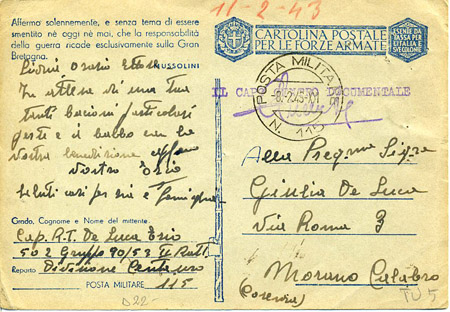 11-2-43
Affermo solennemente, e senza tema di essere
smentito nè oggi nè mai, che la responsabilità
della guerra ricade esclusivamente sulla Gran
Bretagna.
MUSSOLINI
CARTOLINA POSTALE
PER LE FORZE ARMATE
ESENTE DA
TASSA PER
L'ITALIA E
SVE COLONIE
POSTA MILITARE
N. 115
IL CAPO DOCUMENTALE
In attesa di una tua
tanti bacioni particolari
e il babbo con la
vostra benedizione
vostro Ezio
Saluti cari per zia e famiglia
Grado, Cognome e Nome del mittente.
Cap. R.T. De Luca Ezio
502 Gruppo 90/53 II Batt.
Reparto Divisione Centauro
POSTA MILITARE 115
Alla
Giulia De Luca
Via Roma 3
Morano Calabro
(Cosenza)
D22-
TU 5